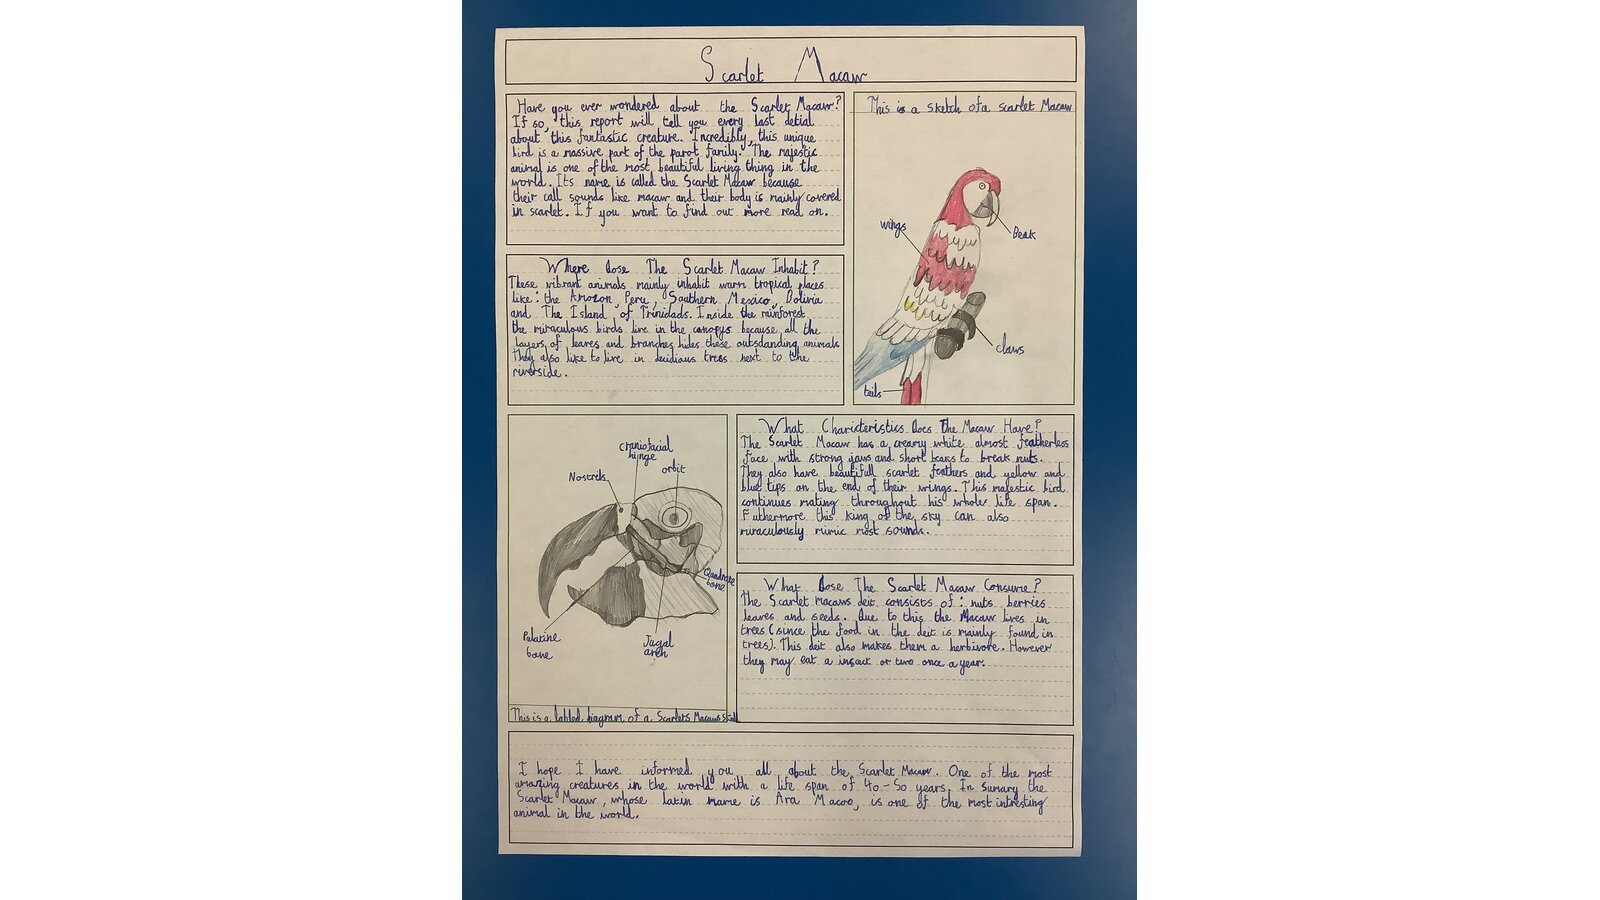 Scarlet Macaw
Have you ever wondered about the Scarlet Macaw?
If so, this report will tell you every last detial
about this fantastic creature. Incredibly, this unique
bird is a massive part of the parot family. The majestic
animal is one of the most beautiful living thing in the
world. Its name is called the Scarlet Macaw because
their call sounds like macaw and their body is mainly covered
in scarlet. If you want to find out more read on.
This is a sketch of a scarlet Macaw
wings
Beak
claws
tails
Where dose The Scarlet Macaw Inhabit?
These vibrant animals mainly inhabit warm tropical places
like: the Amozon, Peru, Southern Mexico, Bolivia
and The Island of Trinidads. Inside the rainforest
the miraculous birds live in the canopys because all the
layers of leaves and branches hides these outsdanding animals
They also like to live in decidious trees next to the
riverside.
craniofacial
hinge
Nostrils
orbit
Quadrate
bone
Palatine
bone
Jugal
arch
This is a labled diagram of a Scarlets Macaws
What Charicteristics Does The Macaw Have?
The Scarlet Macaw has a creamy white almost featherless
face with strong jaws and short beaks to break nuts.
They also have beautifull scarlet feathers and yellow and
blue tips on the end of their wings. This majestic bird
continues mating throughout his whole life span.
Futhermore this king of the sky can also
miraculously mimic most sounds.
What dose The Scarlet Macaw Consume?
The Scarlet macaws deit consists of: nuts berries
leaves and seeds. Due to this the Macaw lives in
trees (since the food in the deit is mainly found in
trees). This deit also makes them a herbivore. However
they may eat a insect or two once a year.
I hope I have informed you all about the Scarlet Macaw. One of the most
amazing creatures in the world with a life span of 40-50 years. In Sumary the
Scarlet Macaw, whose latin name is Ara Macao, is one of the most intresting
animal in the world.